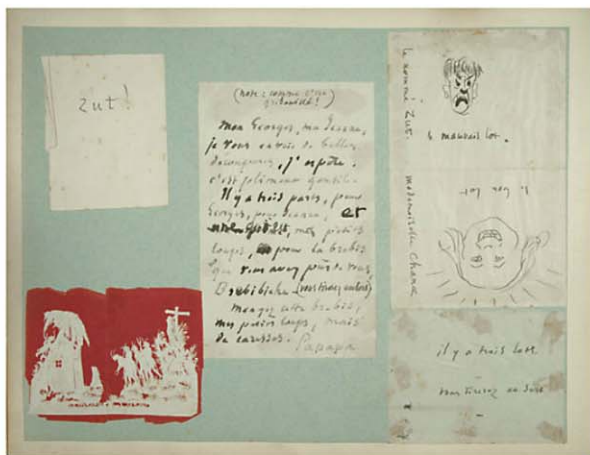 zut!
(notez comme c'est
mon Georges, ma Jeanne,
je vous envoie de belles
j'espère.
c'est joliment gentil.
Il y a trois parts, pour
Georges, pour Jeanne, et
mes petits
loups, pour la brebis
que vous avez près de vous,
(vous tirerez au sort)
mangez cette brebis,
mes petits loups, mais
de caresses. Papapa
le nommé Zut.
le mauvais lot.
le bon lot
mademoiselle Chance
il y a trois lots
vous tirerez au sort